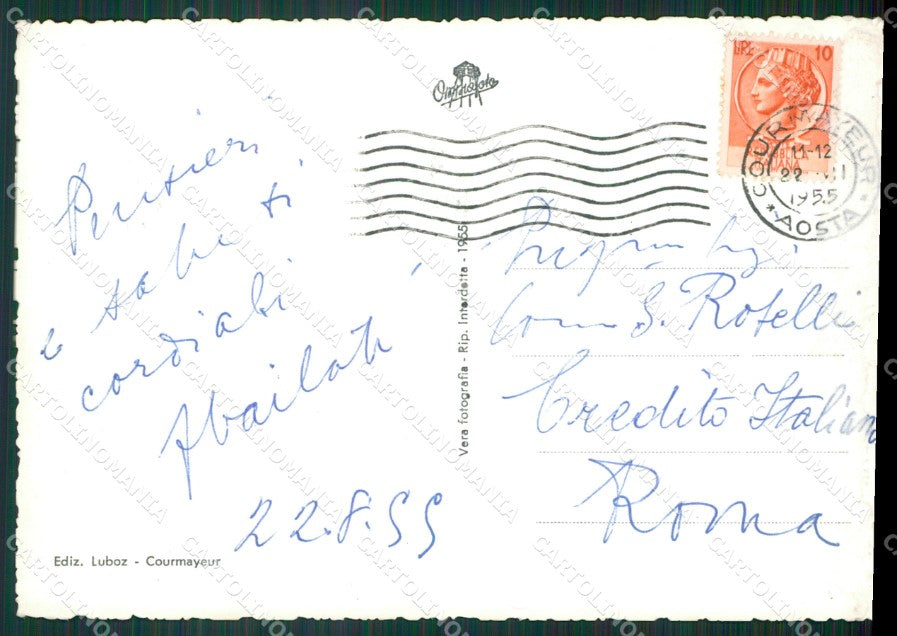 Pensieri
e saluti
cordiali
22.8.55
Ediz. Luboz - Courmayeur
Vera fotografia - Rip. Interdetta - 1955
LIRE 10
COURMAYEUR
11-12
22 VIII
1955
* AOSTA *
Comm S. Rotelli
Credito Italiano
Roma
CARTOLINOMANIA